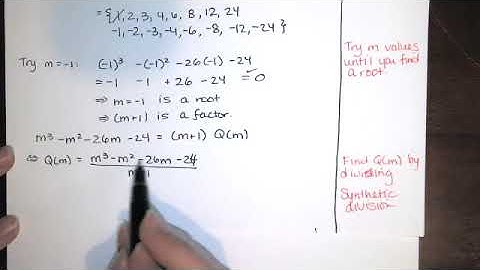 = {1, 2, 3, 4, 6, 8, 12, 24
-1, -2, -3, -4, -6, -8, -12, -24 }
Try m=-1: (-1)³ -(-1)² -26(-1) -24
= -1 -1 +26 -24 = 0
⇒ m=-1 is a root
⇒ (m+1) is a factor.
m³-m²-26m-24 = (m+1) Q(m)
⇔ Q(m) = m³-m²-26m-24
Try m values
until you find
a root.
Find Q(m) by
dividing
Synthetic
division